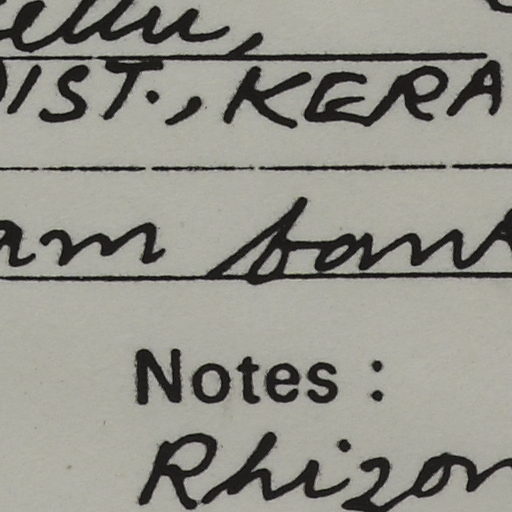 ellu,
DIST., KERA
am bank
Notes :
Rhizom